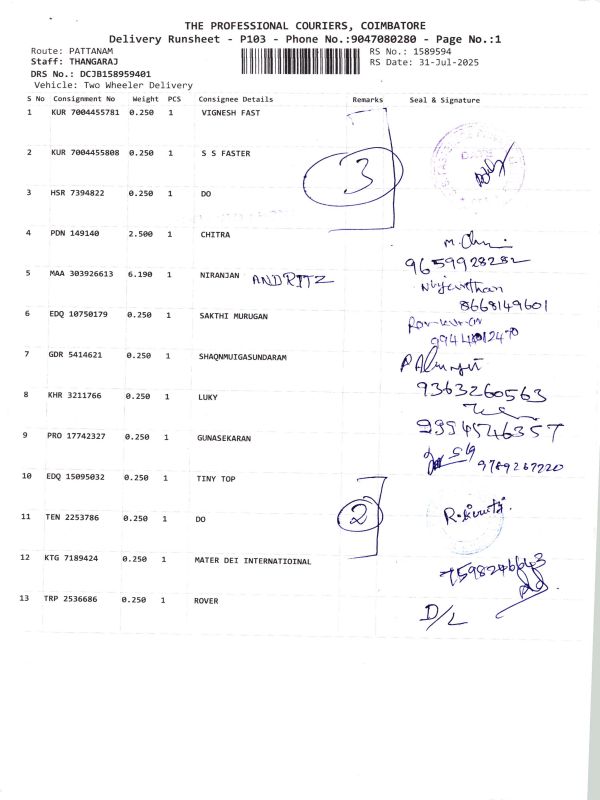 THE PROFESSIONAL COURIERS, COIMBATORE
Delivery Runsheet - P103 - Phone No.:9047080280 - Page No.:1
Route: PATTANAM
RS No.: 1589594
Staff: THANGARAJ
RS Date: 31-Jul-2025
DRS No.: DCJB158959401
Vehicle: Two Wheeler Delivery
S No Consignment No Weight PCS Consignee Details Remarks Seal & Signature
1 KUR 7004455781 0.250 1 VIGNESH FAST
2 KUR 7004455808 0.250 1 S S FASTER
3
3 HSR 7394822 0.250 1 DO
4 PDN 149140 2.500 1 CHITRA
9659928282
5 MAA 303926613 6.190 1 NIRANJAN ANDRITZ
8668149601
6 EDQ 10750179 0.250 1 SAKTHI MURUGAN
7 GDR 5414621 0.250 1 SHAQNMUIGASUNDARAM
9363260563
8 KHR 3211766 0.250 1 LUKY
9994546357
9 PRO 17742327 0.250 1 GUNASEKARAN
9789267220
10 EDQ 15095032 0.250 1 TINY TOP
11 TEN 2253786 0.250 1 DO
2
12 KTG 7189424 0.250 1 MATER DEI INTERNATIOINAL
13 TRP 2536686 0.250 1 ROVER
D/L